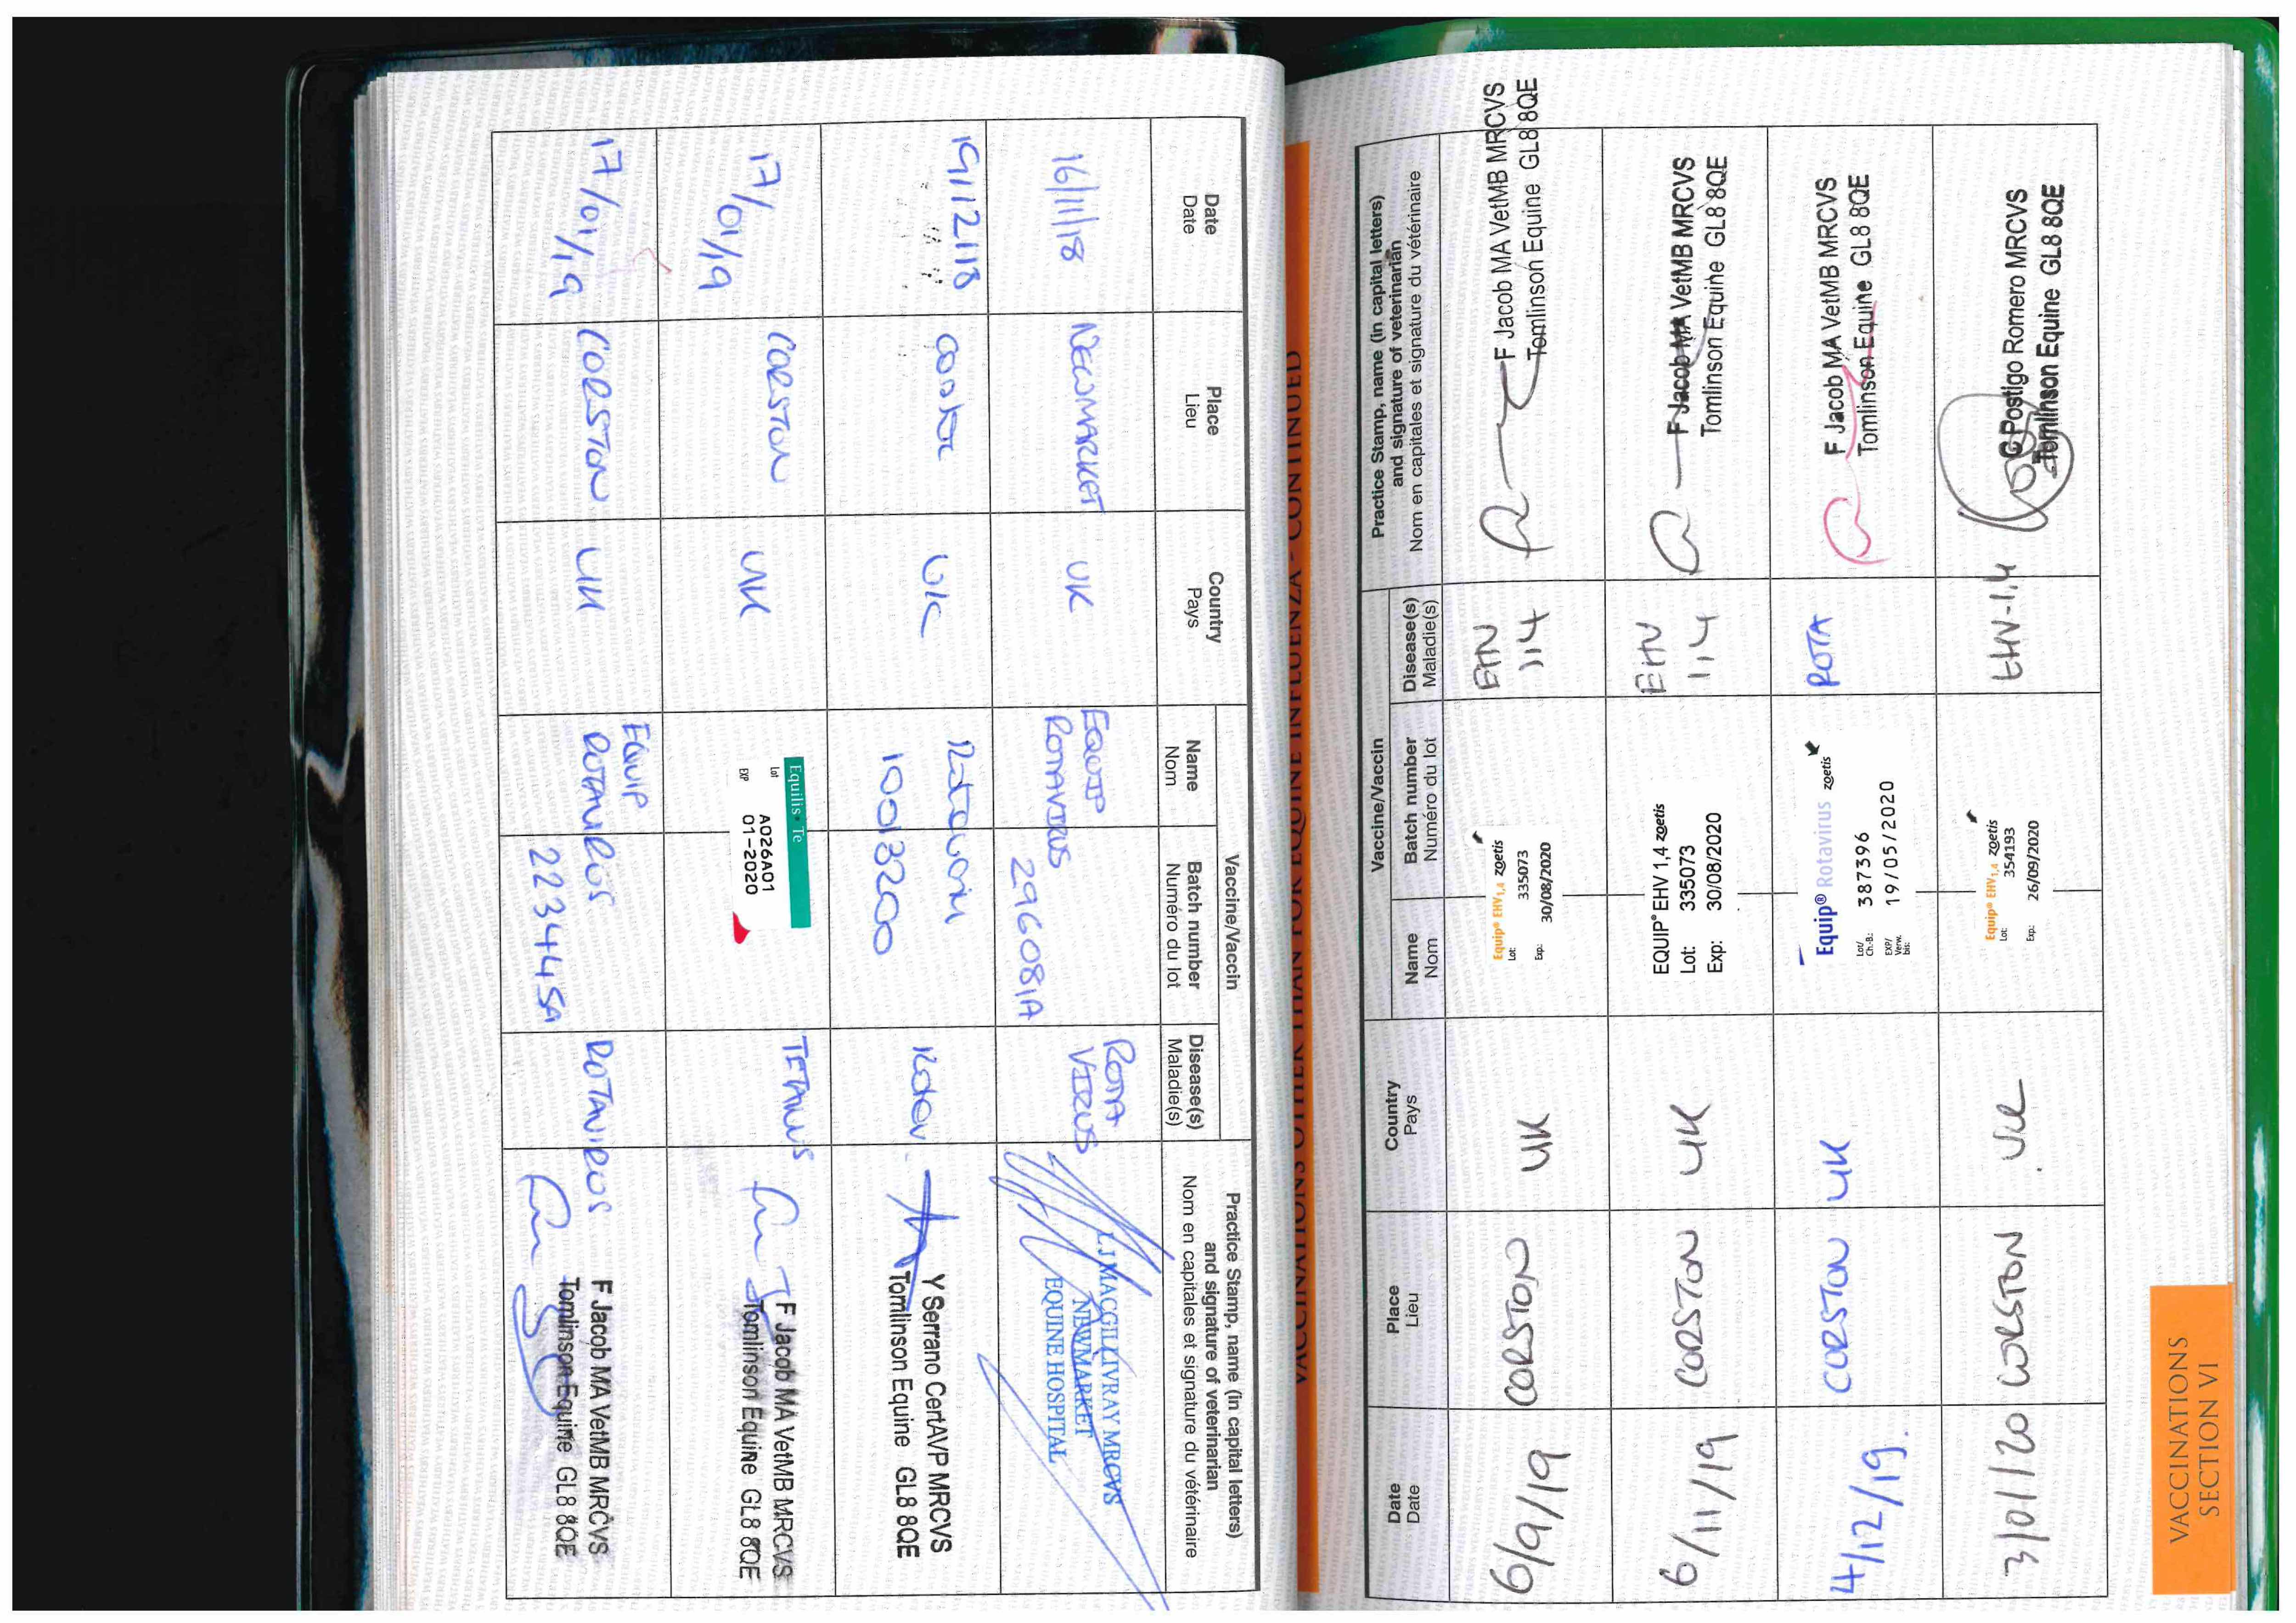 VACCINATIONS OTHER THAN FOR EQUINE INFLUENZA - CONTINUED
Date
Date
Place
Lieu
Country
Pays
Vaccine/Vaccin
Name
Nom
Batch number
Numéro du lot
Disease(s)
Maladie(s)
Practice Stamp, name (in capital letters)
and signature of veterinarian
Nom en capitales et signature du vétérinaire
16/11/18
NEWMARKET
UK
EQUIP
ROTAVIRUS
296081A
ROTA
VIRUS
L J MACGILLIVRAY MRCVS
NEWMARKET
EQUINE HOSPITAL
19/12/18
UK
10013200
Y Serrano CertAVP MRCVS
Tomlinson Equine GL8 8QE
17/01/19
CORSTON
UK
Equilis® Te
Lot A026A01
EXP 01-2020
TETANUS
F Jacob MA VetMB MRCVS
Tomlinson Equine GL8 8QE
17/01/19
CORSTON
UK
EQUIP
ROTAVIRUS
223445A
ROTAVIRUS
F Jacob MA VetMB MRCVS
Tomlinson Equine GL8 8QE
VACCINATIONS
SECTION VI
Practice Stamp, name (in capital letters)
and signature of veterinarian
Nom en capitales et signature du vétérinaire
Vaccine/Vaccin
Disease(s)
Maladie(s)
Batch number
Numéro du lot
Name
Nom
Country
Pays
Place
Lieu
Date
Date
F Jacob MA VetMB MRCVS
Tomlinson Equine GL8 8QE
EHV
1,4
Equip® EHV1,4 zoetis
Lot: 335073
Exp: 30/08/2020
UK
CORSTON
6/9/19
F Jacob MA VetMB MRCVS
Tomlinson Equine GL8 8QE
EHV
1,4
EQUIP® EHV 1,4 zoetis
Lot: 335073
Exp: 30/08/2020
UK
CORSTON
6/11/19
F Jacob MA VetMB MRCVS
Tomlinson Equine GL8 8QE
ROTA
Equip® Rotavirus zoetis
Lot/
Ch.-B.: 387396
EXP/
Verw.
bis: 19/05/2020
UK
CORSTON
4/12/19.
C Postigo Romero MRCVS
Tomlinson Equine GL8 8QE
EHV-1,4
Equip® EHV1,4 zoetis
Lot: 354193
Exp: 26/09/2020
UK
CORSTON
3/01/20